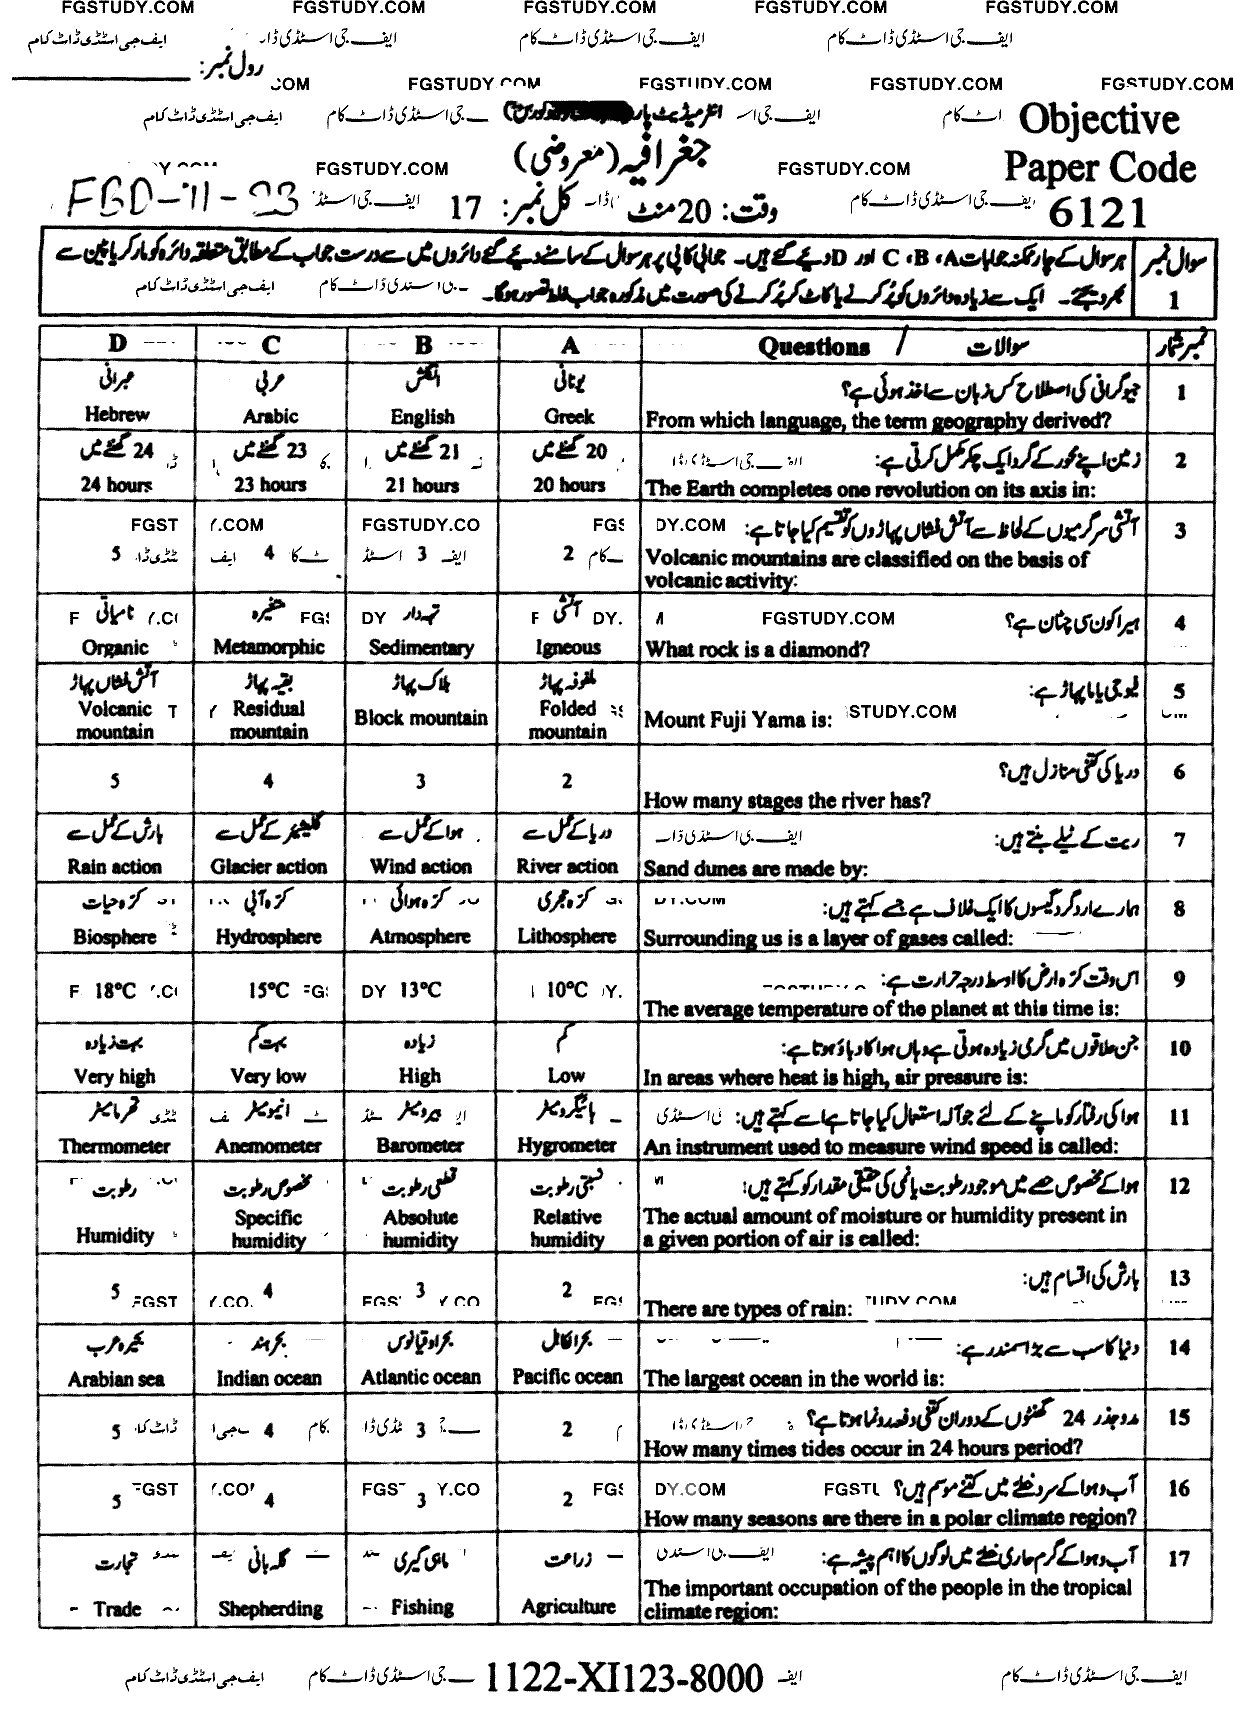 FGSTUDY.COM FGSTUDY.COM FGSTUDY.COM FGSTUDY.COM FGSTUDY.COM
ایف جی اسٹڈی ڈاٹ کام
رول نمبر:
FGSTUDY.COM FGSTUDY.COM FGSTUDY.COM FGSTUDY.COM
Objective
Paper Code
6121
جغرافیہ (معروضی)
FGSTUDY.COM FGSTUDY.COM
وقت: 20 منٹ کل نمبر: 17
FBD-11-23
سوال نمبر 1
ہر سوال کے چار ممکنہ جوابات A، B، C اور D دیئے گئے ہیں۔ جوابی کاپی پر ہر سوال کے سامنے دیئے گئے دائروں میں سے درست جواب کے مطابق متعلقہ دائرہ کو مارکر یا پین سے
بھر دیجئے۔ ایک سے زیادہ دائروں کو پُر کرنے یا کاٹ کر پُر کرنے کی صورت میں مذکورہ جواب غلط تصور ہوگا۔
D C B A Questions / سوالات نمبر شمار
عبرانی عربی انگلش یونانی جیوگرافی کی اصطلاح کس زبان سے اخذ ہوئی ہے؟ 1
Hebrew Arabic English Greek From which language, the term geography derived?
24 گھنٹے میں 23 گھنٹے میں 21 گھنٹے میں 20 گھنٹے میں زمین اپنے محور کے گرد ایک چکر مکمل کرتی ہے: 2
24 hours 23 hours 21 hours 20 hours The Earth completes one revolution on its axis in:
آتشی سرگرمیوں کے لحاظ سے آتش فشاں پہاڑوں کو تقسیم کیا جاتا ہے: 3
5 4 3 2 Volcanic mountains are classified on the basis of
volcanic activity:
نامیاتی متغیرہ تہہ دار آتشی ہیرا کون سی چٹان ہے؟ 4
Organic Metamorphic Sedimentary Igneous What rock is a diamond?
آتش فشاں پہاڑ بقیہ پہاڑ بلاک پہاڑ ملفوفہ پہاڑ فیوجی یاما پہاڑ ہے: 5
Volcanic Residual Block mountain Folded Mount Fuji Yama is:
mountain mountain mountain
دریا کی کتنی منازل ہیں؟ 6
5 4 3 2 How many stages the river has?
بارش کے عمل سے گلیشیر کے عمل سے ہوا کے عمل سے دریا کے عمل سے ریت کے ٹیلے بنتے ہیں: 7
Rain action Glacier action Wind action River action Sand dunes are made by:
کرہ حیات کرہ آبی کرہ ہوائی کرہ حجری ہمارے ارد گرد گیسوں کا ایک غلاف ہے جسے کہتے ہیں: 8
Biosphere Hydrosphere Atmosphere Lithosphere Surrounding us is a layer of gases called:
اس وقت کرہ ارض کا اوسط درجہ حرارت ہے: 9
18°C 15°C 13°C 10°C The average temperature of the planet at this time is:
بہت زیادہ بہت کم زیادہ کم جن علاقوں میں گرمی زیادہ ہوتی ہے وہاں ہوا کا دباؤ ہوتا ہے: 10
Very high Very low High Low In areas where heat is high, air pressure is:
تھرمامیٹر انیمومیٹر بیرومیٹر ہائیگرومیٹر ہوا کی رفتار کو ماپنے کے لئے جو آلہ استعمال کیا جاتا ہے اسے کہتے ہیں: 11
Thermometer Anemometer Barometer Hygrometer An instrument used to measure wind speed is called:
رطوبت مخصوص رطوبت قطعی رطوبت نسبتی رطوبت ہوا کے مخصوص حصے میں موجود رطوبت یا نمی کی حقیقی مقدار کو کہتے ہیں: 12
Humidity Specific humidity Absolute humidity Relative humidity The actual amount of moisture or humidity present in
a given portion of air is called:
بارش کی اقسام ہیں: 13
5 4 3 2 There are types of rain:
بحیرہ عرب بحر ہند بحر اوقیانوس بحر الکاہل دنیا کا سب سے بڑا سمندر ہے: 14
Arabian sea Indian ocean Atlantic ocean Pacific ocean The largest ocean in the world is:
مد و جذر 24 گھنٹوں کے دوران کتنی دفعہ رونما ہوتا ہے؟ 15
5 4 3 2 How many times tides occur in 24 hours period?
آب و ہوا کے سرد خطے میں کتنے موسم ہیں؟ 16
5 4 3 2 How many seasons are there in a polar climate region?
تجارت گلہ بانی ماہی گیری زراعت آب و ہوا کے گرم حاری خطے میں لوگوں کا اہم پیشہ ہے: 17
Trade Shepherding Fishing Agriculture The important occupation of the people in the tropical
climate region:
1122-XI123-8000
ایف جی اسٹڈی ڈاٹ کام